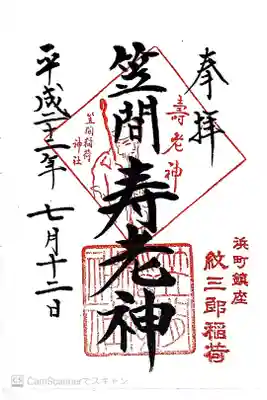 奉拝
壽老神
浜町鎮座
紋三郎稲荷
笠間寿老神
笠間稲荷
神社
平成二十二年七月十二日
CS CamScannerでスキャン